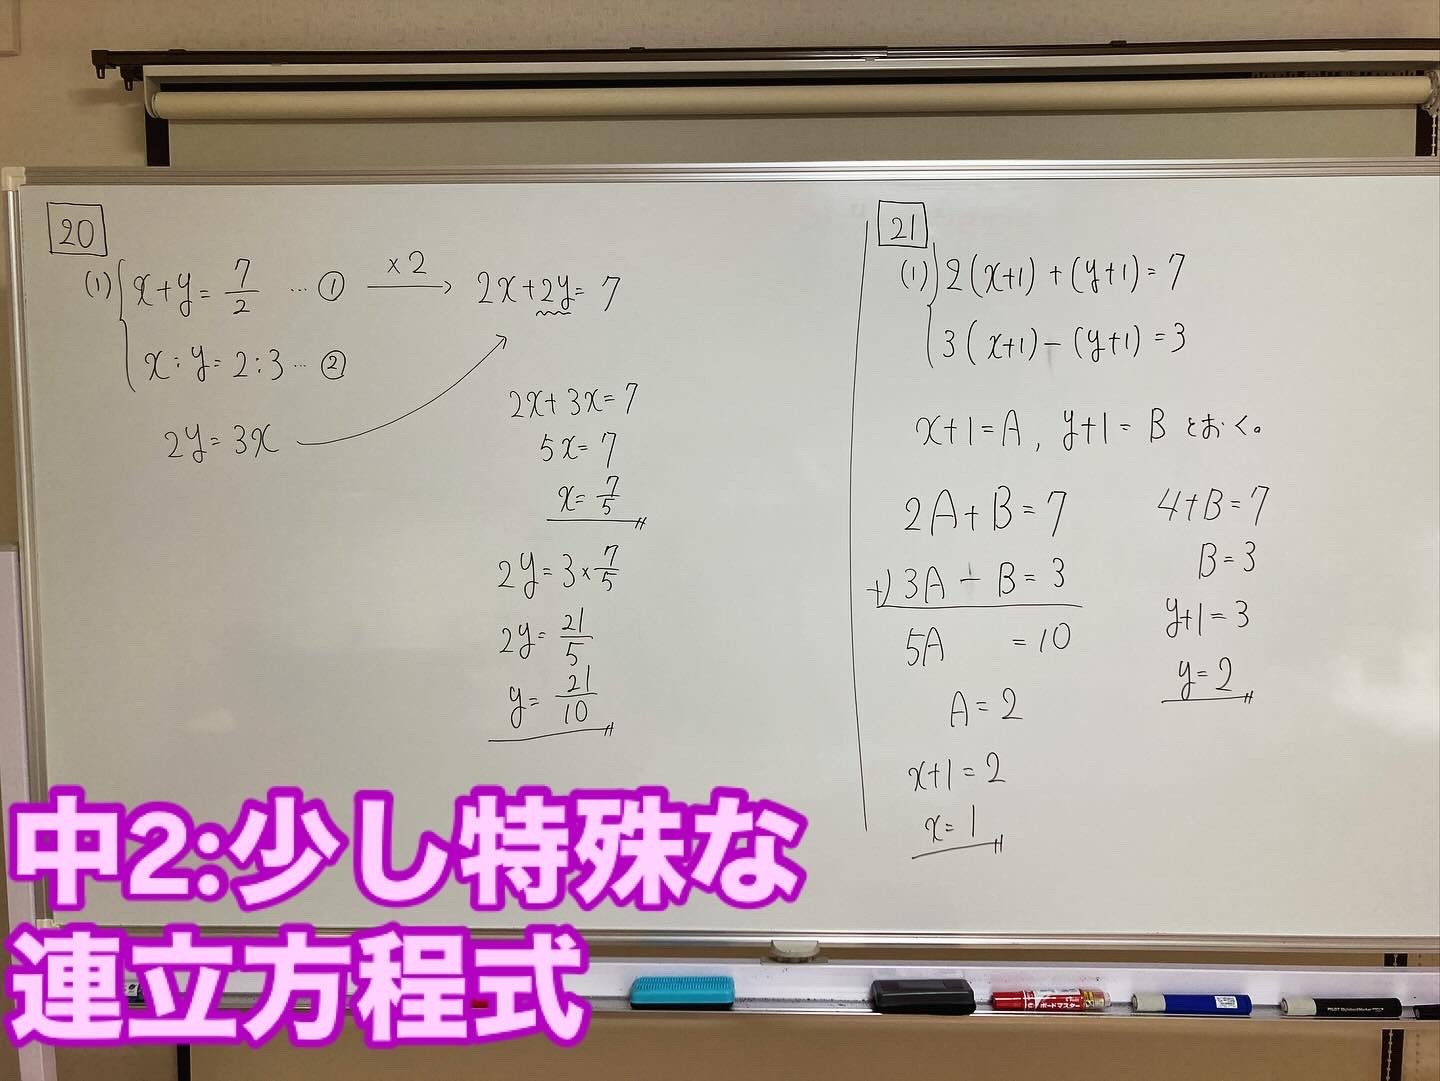 20
(1) x+y=7/2 …① ×2→ 2x+2y=7
x:y=2:3…②
2y=3x
2x+3x=7
5x=7
x=7/5
2y=3×7/5
2y=21/5
y=21/10
21
(1) 2(x+1)+(y+1)=7
3(x+1)-(y+1)=3
x+1=A, y+1=Bとおく。
2A+B=7
+) 3A-B=3
5A =10
A=2
x+1=2
x=1
4+B=7
B=3
y+1=3
y=2
中2:少し特殊な
連立方程式
ボードマスター